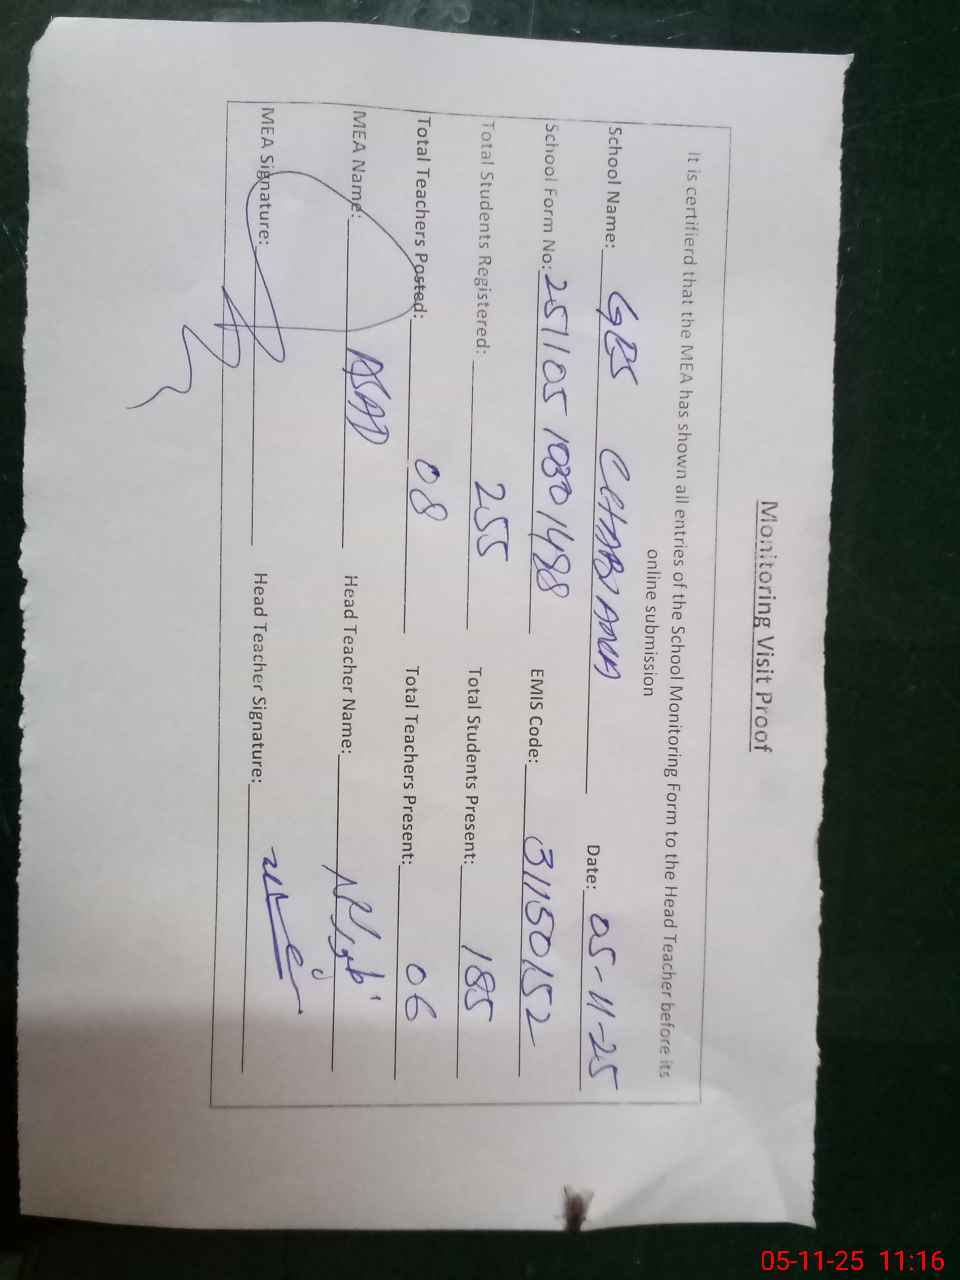 Monitoring Visit Proof
It is certifierd that the MEA has shown all entries of the School Monitoring Form to the Head Teacher before its
online submission
School Name: GPS Date: 05-11-25
School Form No: 251105 10301488 EMIS Code: 31150152
Total Students Registered: 255 Total Students Present: 185
Total Teachers Posted: 08 Total Teachers Present: 06
MEA Name: ASAD Head Teacher Name:
MEA Signature: Head Teacher Signature:
05-11-25 11:16